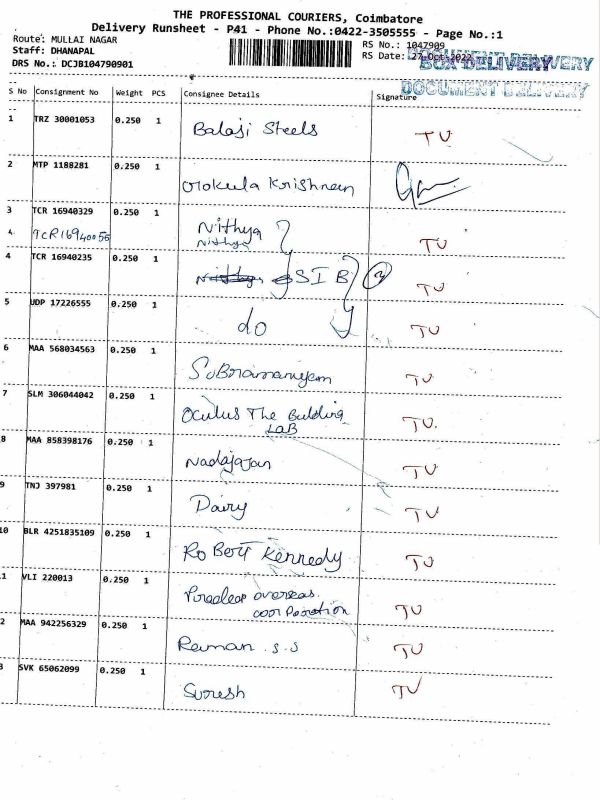 THE PROFESSIONAL COURIERS, Coimbatore
Delivery Runsheet - P41 - Phone No.:0422-3505555 - Page No.:1
Route: MULLAI NAGAR
RS No.: 1047909
Staff: DHANAPAL
RS Date: 27-Oct-2022
DOCUMENT DELIVERY
BOX DELIVERY
DRS No.: DCJB104790901
DOCUMENT DELIVERY
S No Consignment No Weight PCS Consignee Details Signature
1 TRZ 30001053 0.250 1 Balaji Steels TU
2 MTP 1188281 0.250 1 Gokula Krishnan
3 TCR 16940329 0.250 1 Nithya
4. TCR 16940055 Nithya TU
4 TCR 16940235 0.250 1 SIB 2 TU
5 UDP 17226555 0.250 1 do TU
6 MAA 568034563 0.250 1 SuBramaniyam TU
7 SLM 306044042 0.250 1 Oculus The Building TU.
LAB
8 MAA 858398176 0.250 1 Nadajajan TU
9 TNJ 397981 0.250 1 Dairy TU
10 BLR 4251835109 0.250 1 RoBert Kennedy TU
1 VLI 220013 0.250 1 Pradeep overseas.
coorporation TU
2 MAA 942256329 0.250 1 Raman .s.s TU
3 SVK 65062099 0.250 1 Suresh TU